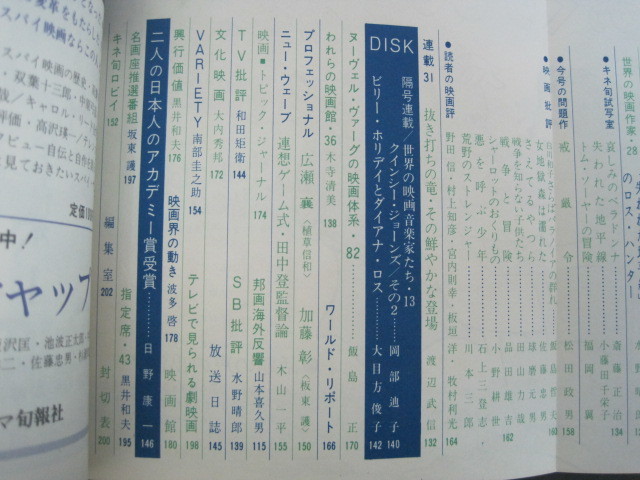 世界の映画作家・28
のロス・ハンター
●キネ旬試写室
哀しみのベラドンナ 斎藤正治 134
失われた地平線 小藤田千栄子
トム・ソーヤの冒険 福岡翼
●今号の問題作
戒厳令 松田政男 158
●映画批評
女地獄森は濡れた
戦争を知らない子供たち
さえてるやつら
戦争と冒険
シャーロットのおくりもの 小野耕世
悪を呼ぶ少年 石上三登志
荒野のストレンジャー 川本三郎
●読者の映画評
野田信・村上知彦・宮内則幸・板垣洋・牧村利光 164
連載31 抜き打ちの竜・その鮮やかな登場 渡辺武信 132
DISK
隔号連載/世界の映画音楽家たち・13
クインシー・ジョーンズ/その2 岡部迪子 140
ビリー・ホリデイとダイアナ・ロス 大目方俊子 142
ヌーヴェル・ヴァーグの映画体系・82 飯島正 170
われらの映画館・36 木寺清美 138
ワールド・リポート 166
プロフェッショナル 広瀬襄〈植草信和〉 加藤彰〈板東護〉 150
ニュー・ウェーブ 連想ゲーム式・田中登監督論 木山一平 155
映画・トピック・ジャーナル 174
邦画海外反響 山本喜久男 115
TV批評 和田矩衛 144
SB批評 水野晴郎 139
文化映画 大内秀邦 172
放送日誌 145
VARIETY 南部圭之助 154
テレビで見られる劇映画 198
興行価値 黒井和夫 176
映画界の動き 波多啓 178
映画館 180
二人の日本人のアカデミー賞受賞 日野康一 146
名画座推選番組 坂東護 197
指定席・43 黒井和夫 195
キネ旬ロビイ 152
編集室 202
封切表 200
スパイ映画ならこの
スパイ映画の歴史
双葉十三郎
高沢瑛一
ビュー自伝と自作
見ておきたいスパイ
定価
中!
ャップ
沢匡・池波正太郎
二、佐藤忠男
マ旬報社